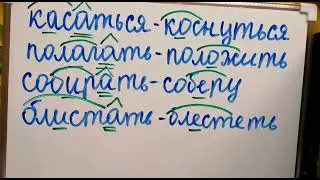 касаться-коснуться
полагать-положить
собирать-соберу
блистать-блестеть